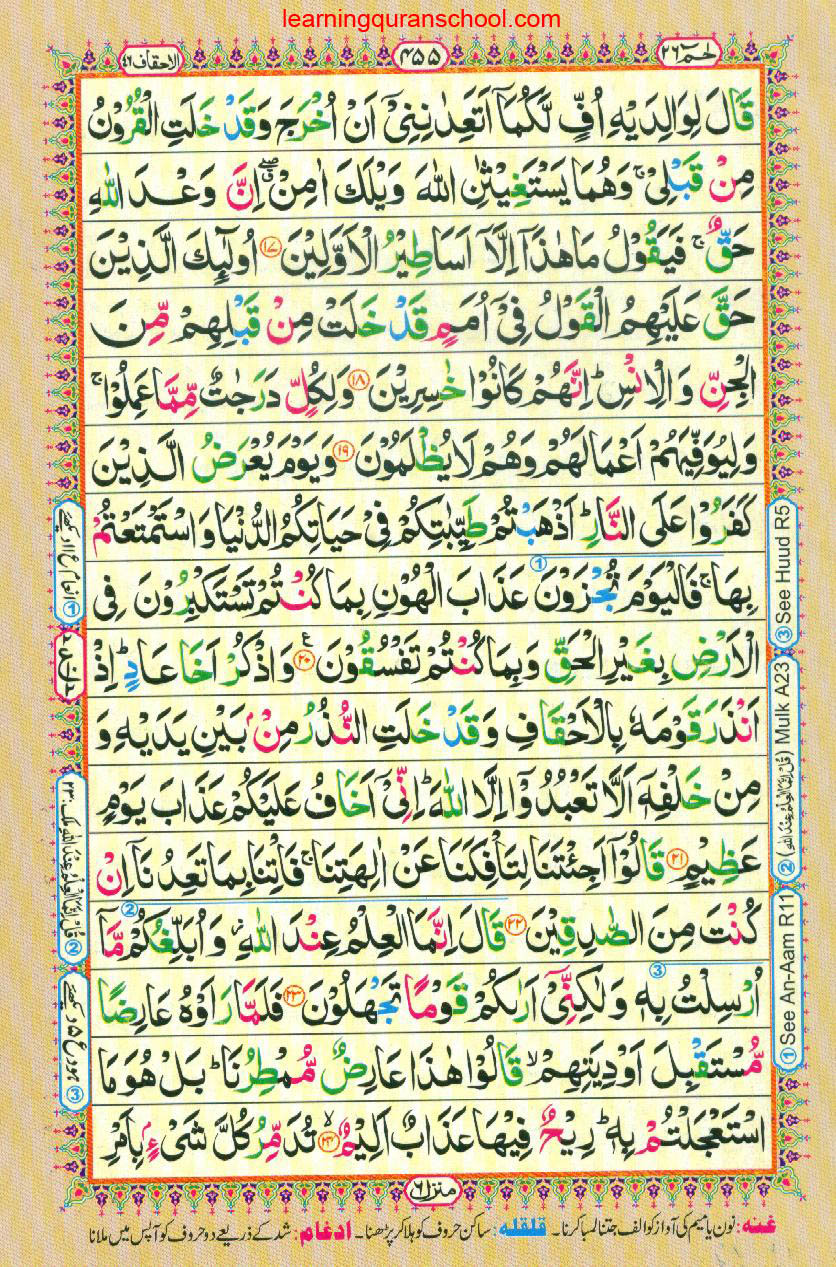 learningquranschool.com
الاحقاف ٤٦
٤٥٥
حٰمٓ ٢٦
قَالَ لِوَالِدَيْهِ اُفٍّ لَّكُمَاۤ اَتَعِدٰنِنِیْۤ اَنْ اُخْرَجَ وَقَدْ خَلَتِ الْقُرُوْنُ
مِنْ قَبْلِیْ ۚ وَهُمَا یَسْتَغِیْثٰنِ اللّٰهَ وَیْلَكَ اٰمِنْ ۖۗ اِنَّ وَعْدَ اللّٰهِ
حَقٌّ ۚ فَیَقُوْلُ مَا هٰذَاۤ اِلَّاۤ اَسَاطِیْرُ الْاَوَّلِیْنَ ۝۱۷ اُولٰٓئِكَ الَّذِیْنَ
حَقَّ عَلَیْهِمُ الْقَوْلُ فِیْۤ اُمَمٍ قَدْ خَلَتْ مِنْ قَبْلِهِمْ مِّنَ
الْجِنِّ وَالْاِنْسِ ؕ اِنَّهُمْ كَانُوْا خٰسِرِیْنَ ۝۱۸ وَلِكُلٍّ دَرَجٰتٌ مِّمَّا عَمِلُوْا ۚ
وَلِیُوَفِّیَهُمْ اَعْمَالَهُمْ وَهُمْ لَا یُظْلَمُوْنَ ۝۱۹ وَیَوْمَ یُعْرَضُ الَّذِیْنَ
كَفَرُوْا عَلَی النَّارِ ؕ اَذْهَبْتُمْ طَیِّبٰتِكُمْ فِیْ حَیَاتِكُمُ الدُّنْیَا وَاسْتَمْتَعْتُمْ
بِهَا ۚ فَالْیَوْمَ تُجْزَوْنَ عَذَابَ الْهُوْنِ بِمَا كُنْتُمْ تَسْتَكْبِرُوْنَ فِی
الْاَرْضِ بِغَیْرِ الْحَقِّ وَبِمَا كُنْتُمْ تَفْسُقُوْنَ ۝۲۰ ع وَاذْكُرْ اَخَا عَادٍ ؕ اِذْ
اَنْذَرَ قَوْمَهٗ بِالْاَحْقَافِ وَقَدْ خَلَتِ النُّذُرُ مِنْۢ بَیْنِ یَدَیْهِ وَ
مِنْ خَلْفِهٖۤ اَلَّا تَعْبُدُوْۤا اِلَّا اللّٰهَ ؕ اِنِّیْۤ اَخَافُ عَلَیْكُمْ عَذَابَ یَوْمٍ
عَظِیْمٍ ۝۲۱ قَالُوْۤا اَجِئْتَنَا لِتَاْفِكَنَا عَنْ اٰلِهَتِنَا ۚ فَاْتِنَا بِمَا تَعِدُنَاۤ اِنْ
كُنْتَ مِنَ الصّٰدِقِیْنَ ۝۲۲ قَالَ اِنَّمَا الْعِلْمُ عِنْدَ اللّٰهِ ؗ وَاُبَلِّغُكُمْ مَّاۤ
اُرْسِلْتُ بِهٖ وَلٰكِنِّیْۤ اَرٰىكُمْ قَوْمًا تَجْهَلُوْنَ ۝۲۳ فَلَمَّا رَاَوْهُ عَارِضًا
مُّسْتَقْبِلَ اَوْدِیَتِهِمْ ۙ قَالُوْا هٰذَا عَارِضٌ مُّمْطِرُنَا ؕ بَلْ هُوَ مَا
اسْتَعْجَلْتُمْ بِهٖ ؕ رِیْحٌ فِیْهَا عَذَابٌ اَلِیْمٌ ۝۲۴ ۙ تُدَمِّرُ كُلَّ شَیْءٍۭ بِاَمْرِ
① See An-Aam R11 ② (قُلْ اِنَّمَا الْعِلْمُ عِنْدَ اللّٰهِ) Mulk A23 ③ See Huud R5
① انعام ع ١١ دیکھئے
② قُلْ اِنَّمَا الْعِلْمُ عِنْدَ اللّٰهِ ملک: ٢٣
③ ہود ع ٥ دیکھئے
منزل ٦
غنه: نون یا میم کی آواز کو الف جتنا لمبا کرنا۔ قلقله: ساکن حروف کو ہلا کر پڑھنا۔ ادغام: شد کے ذریعے دو حروف کو آپس میں ملانا